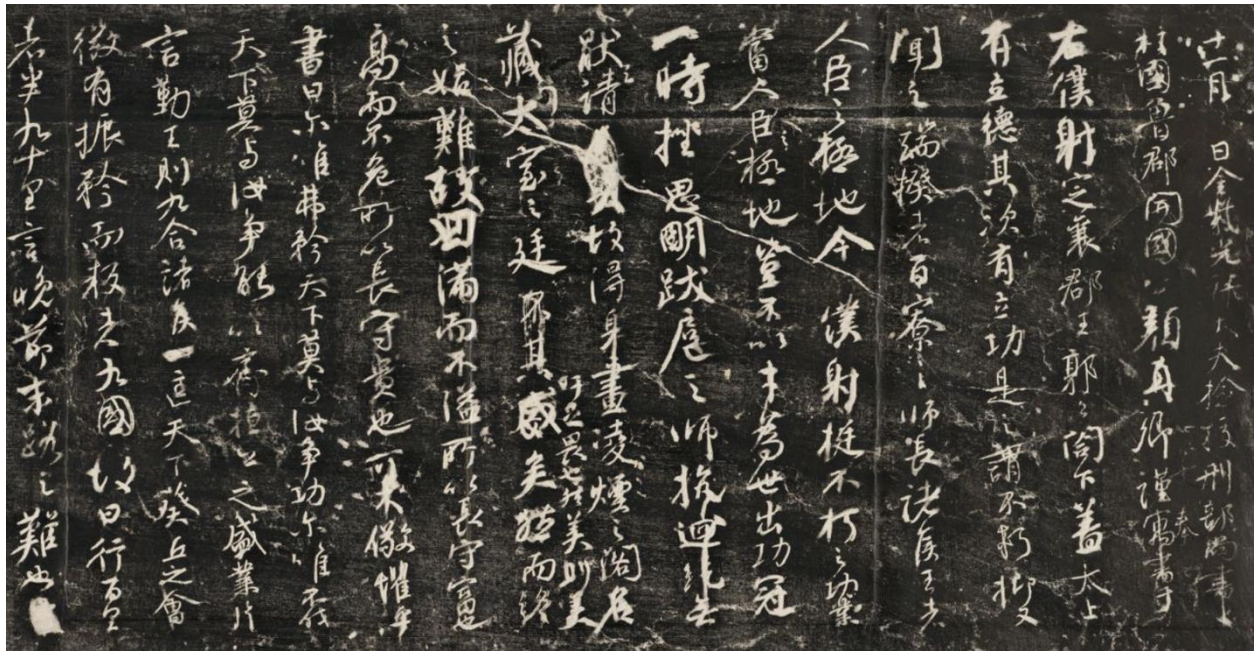 十一月日金紫光祿大夫檢校刑部尚書上
柱國魯郡開國公顏真卿謹奉寓書于
右僕射定襄郡王郭公閤下蓋太上
有立德其次有立功是之謂不朽抑又
聞之端揆者百寮之師長諸侯王者
人臣之極地今僕射挺不朽之功業
當人臣極地豈不以才為世出功冠
一時挫思明跋扈之師抗迴紇無
厭之請故得身畫凌煙之閣名
藏太室之廷吁足畏也然美則美矣然而終
之始難故曰滿而不溢所以長守富也
高而不危所以長守貴也可不儆懼乎
書曰爾唯弗矜天下莫與汝爭功爾唯不伐
天下莫與汝爭能以齊桓公之盛業片
言勤王則九合諸侯一匡天下葵丘之會
微有振矜而叛者九國故曰行百里
者半九十里言晚節末路之難也